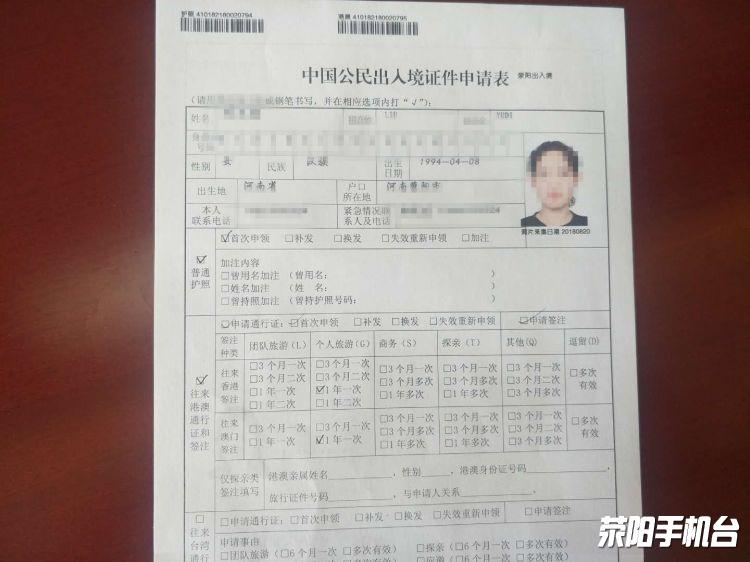 护照 410182180020794
港澳 410182180020795
中国公民出入境证件申请表 荥阳出入境
或钢笔书写，并在相应选项内打“√”)：
姓名 LIU YUDI
性别 民族 汉族 出生日期 1994-04-08
出生地 河南省 户口所在地 河南荥阳市
本人联系电话 紧急情况联系人及电话
照片采集日期 20180820
普通护照
☑首次申领 □补发 □换发 □失效重新申领 □加注
加注内容
□曾用名加注（曾用名： ）
□姓名加注（姓 名： ）
□曾持照加注（曾持护照号码： ）
往来港澳通行证和签注
☑申请通行证：☑首次申领 □补发 □换发 □失效重新申领 ☑申请签注
签注种类 团队旅游（L） 个人旅游（G） 商务（S） 探亲（T） 其他（Q） 逗留(D)
往来香港签注
□3个月一次 □3个月一次 □3个月一次 □3个月一次 □3个月一次 □多次有效
□3个月二次 □3个月二次 □3个月多次 □3个月多次 □3个月二次
□1年一次 ☑1年一次 □1年多次 □1年多次 □3个月多次
□1年二次 □1年二次
往来澳门签注
□3个月一次 □3个月一次 □3个月一次 □3个月一次 □3个月一次 □多次有效
□1年一次 ☑1年一次 □3个月多次 □3个月多次 □3个月二次
□1年多次 □1年多次 □3个月多次
仅探亲类签注填写
港澳亲属姓名 ，性别 ，港澳身份证号码
旅行证件号码 ，与申请人关系
往来台湾通行
□申请通行证：□首次申领 □补发 □换发 □失效重新申领 □申请签注
申请事由
□团队旅游（□6个月一次 □多次有效） □探亲（□6个月一次 □多次有效）
荥阳手机台